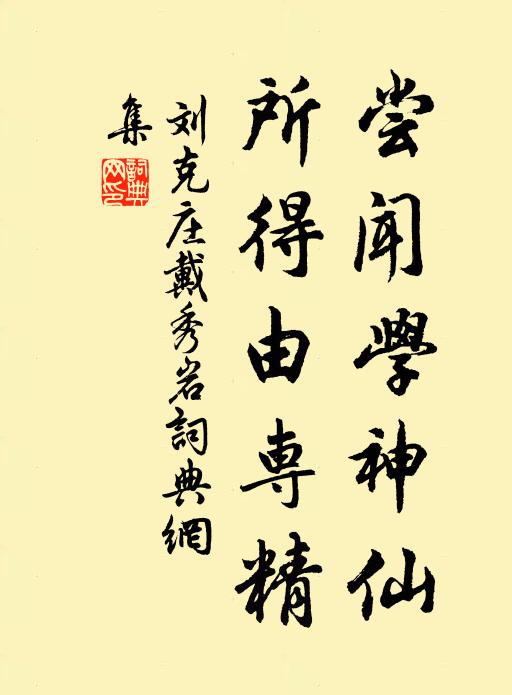 尝闻學神仙
所得由専精
刘克庄戴秀岩詞典網
集
詞典網印